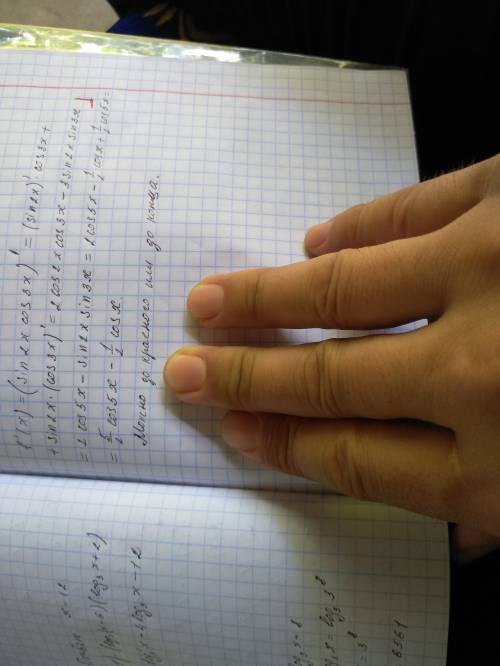 f'(x) = (sin 2x cos 3x)' = (sin 2x)' · cos 3x +
+ sin 2x · (cos 3x)' = 2 cos 2x cos 3x - 3 sin 2x sin 3x
= 2 cos 5x - sin 2x sin 3x = 2 cos 5x - 1/2 cos x + 1/2 cos 5x =
= 5/2 cos 5x - 1/2 cos x
Можно до красного или до конца.
x - 12
(log₃ x + 2)
log₃ x - 12
= log₃ 3⁸
= 3⁸
6561